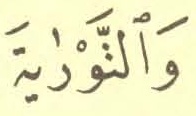 وَٱلتَّوْرٰيةَ